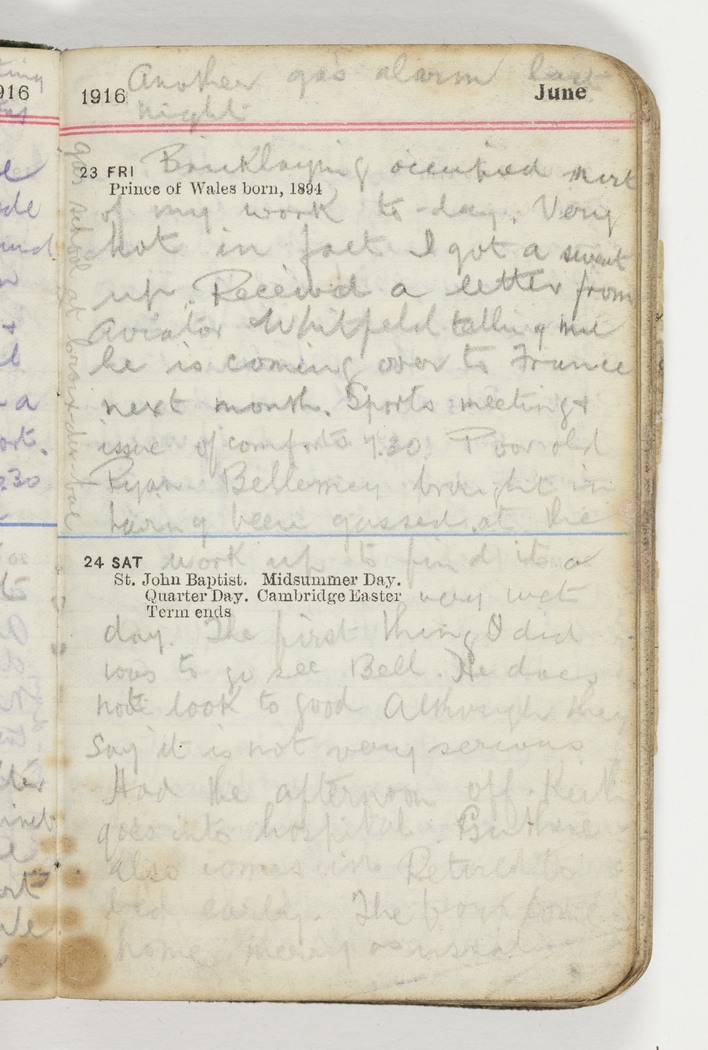 Another gas alarm last
1916 June
night
23 FRI Bricklaying occupied most
Prince of Wales born, 1894
of my work to-day. Very
hot in fact I got a sweat
up. Received a letter from
Aviator Whitfeld telling me
he is coming over to France
next month. Sports meeting &
issue of comforts 7.30. Poor old
Ryan Bellemey brought in
having been gassed at the
gas school at
24 SAT work up to find it a
St. John Baptist. Midsummer Day.
Quarter Day. Cambridge Easter very wet
Term ends
day. The first thing I did
was to go see Bell. He does
not look to good Although they
say it is not very serious
Had the afternoon off. Keith
goes into hospital.
also comes in. Retired to
bed early. The
home merry